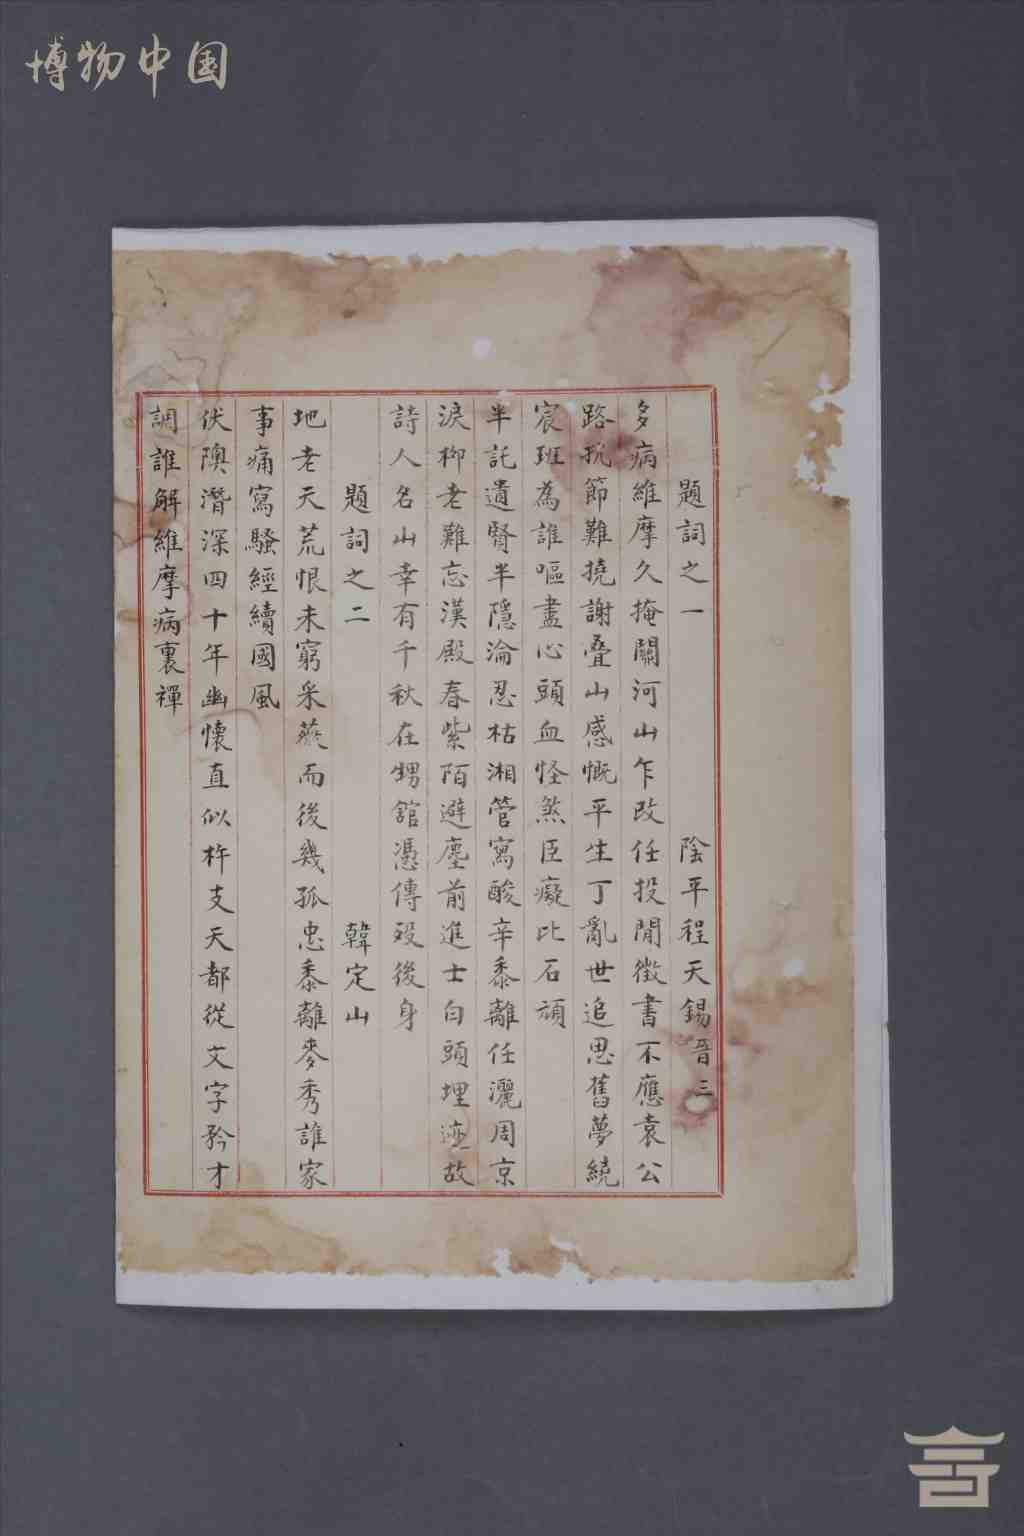 博物中国
題詞之一 陰平程天錫晉三
多病維摩久掩關河山乍改任投閒徵書不應袁公
路抗節難撓謝疊山感慨平生丁亂世追思舊夢繞
宸班為誰嘔盡心頭血怪煞臣癡比石頑
半託遺賢半隱淪忍枯湘管寫酸辛黍離任灑周京
淚柳老難忘漢殿春紫陌避塵前進士白頭埋迹故
詩人名山幸有千秋在甥舘憑傳歿後身
題詞之二 韓定山
地老天荒恨未窮采薇而後幾孤忠黍離麥秀誰家
事痛寫騷經續國風
伏隩潛深四十年幽懷直似杵支天都從文字矜才
調誰解維摩病裏禪